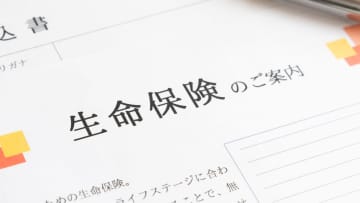 込書
リガナ
生命保険のご案内
ための生命保険。
ライフステージに合わ
ることで、無